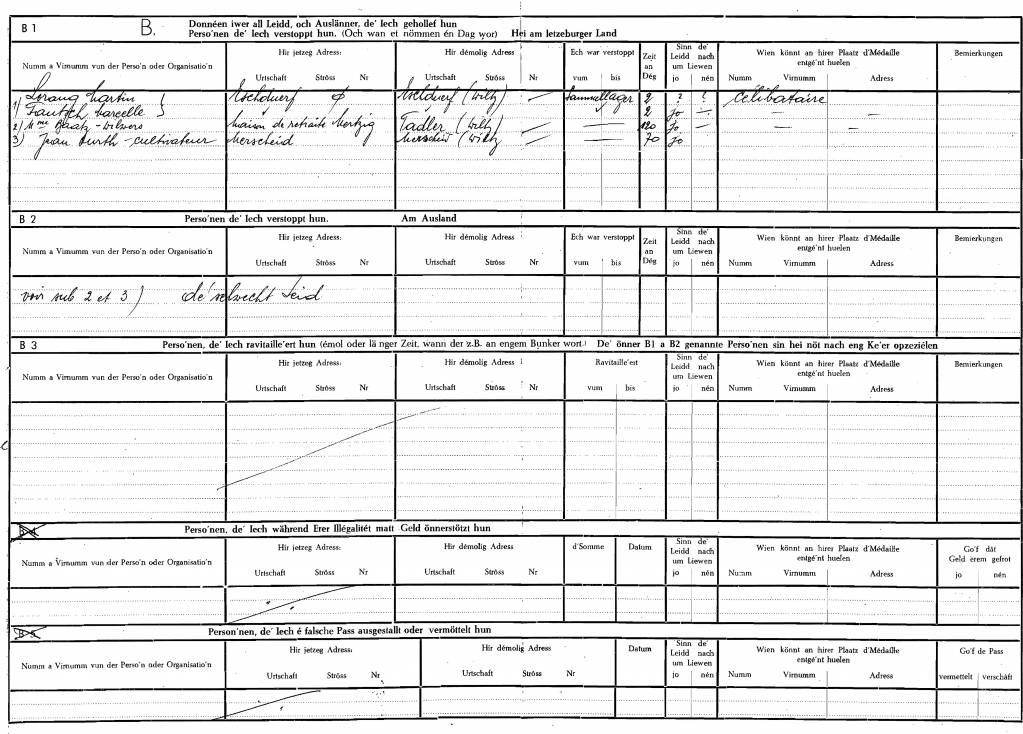 B 1 B. Donnéen iwer all Leidd, och Auslänner, de' Iech gehollef hun
Perso'nen de' Iech verstoppt hun. (Och wan et nömmen én Dag wor) Hei am letzeburger Land
Numm a Virnumm vun der Perso'n oder Organisatio'n
Hir jetzeg Adress:
Urtschaft Ströss Nr
Hir démolig Adress
Urtschaft Ströss Nr
Ech war verstoppt
vum bis
Zeit
an
Dég
Sinn de'
Leidd nach
um Liewen
jo nén
Wien könnt an hirer Plaatz d'Médaille
entgé'nt huelen
Numm Virnumm Adress
Bemierkungen
Lorang Martin Eschduerf Eschduerf (Wiltz) Sammellager 2 ? ? célibataire
1) Marcelle 2 jo —
2) Mme Maison de retraite Mertzig Tadler (Wiltz) — — 120 jo — — — —
3) Jean - cultivateur Merscheid Merscheid (Wiltz) — 70 jo
B 2 Perso'nen de' Iech verstoppt hun. Am Ausland
Numm a Virnumm vun der Perso'n oder Organisatio'n
Hir jetzeg Adress:
Urtschaft Ströss Nr
Hir démolig Adress
Urtschaft Ströss Nr
Ech war verstoppt
vum bis
Zeit
an
Dég
Sinn de'
Leidd nach
um Liewen
jo nén
Wien könnt an hirer Plaatz d'Médaille
entgé'nt huelen
Numm Virnumm Adress
Bemierkungen
voir sub 2 et 3) de'selwecht Leid
B 3 Perso'nen, de' Iech ravitaille'ert hun (émol oder länger Zeit, wann der z.B. an engem Bunker wort.) De' önner B1 a B2 genannte Perso'nen sin hei nöt nach eng Ke'er opzeziélen
Numm a Virnumm vun der Perso'n oder Organisatio'n
Hir jetzeg Adress:
Urtschaft Ströss Nr
Hir démolig Adress
Urtschaft Ströss Nr
Ravitaille'est
vum bis
Sinn de'
Leidd nach
um Liewen
jo nén
Wien könnt an hirer Plaatz d'Médaille
entgé'nt huelen
Numm Virnumm Adress
Bemierkungen
Perso'nen, de' Iech während Erer Illégalitét matt Geld önnerstötzt hun
Numm a Virnumm vun der Perso'n oder Organisatio'n
Hir jetzeg Adress:
Urtschaft Ströss Nr
Hir démolig Adress
Urtschaft Ströss Nr
d'Somme
Datum
Sinn de'
Leidd nach
um Liewen
jo nén
Wien könnt an hirer Plaatz d'Médaille
entgé'nt huelen
Numm Virnumm Adress
Go'f dât
Geld erem gefrot
jo nén
Person'nen, de' Iech é falsche Pass ausgestallt oder vermöttelt hun
Numm a Virnumm vun der Perso'n oder Organisatio'n
Hir jetzeg Adress:
Urtschaft Ströss Nr
Hir démolig Adress
Urtschaft Ströss Nr
Datum
Sinn de'
Leidd nach
um Liewen
jo nén
Wien könnt an hirer Plaatz d'Médaille
entgé'nt huelen
Numm Virnumm Adress
Go'f de Pass
vermettelt verschâft